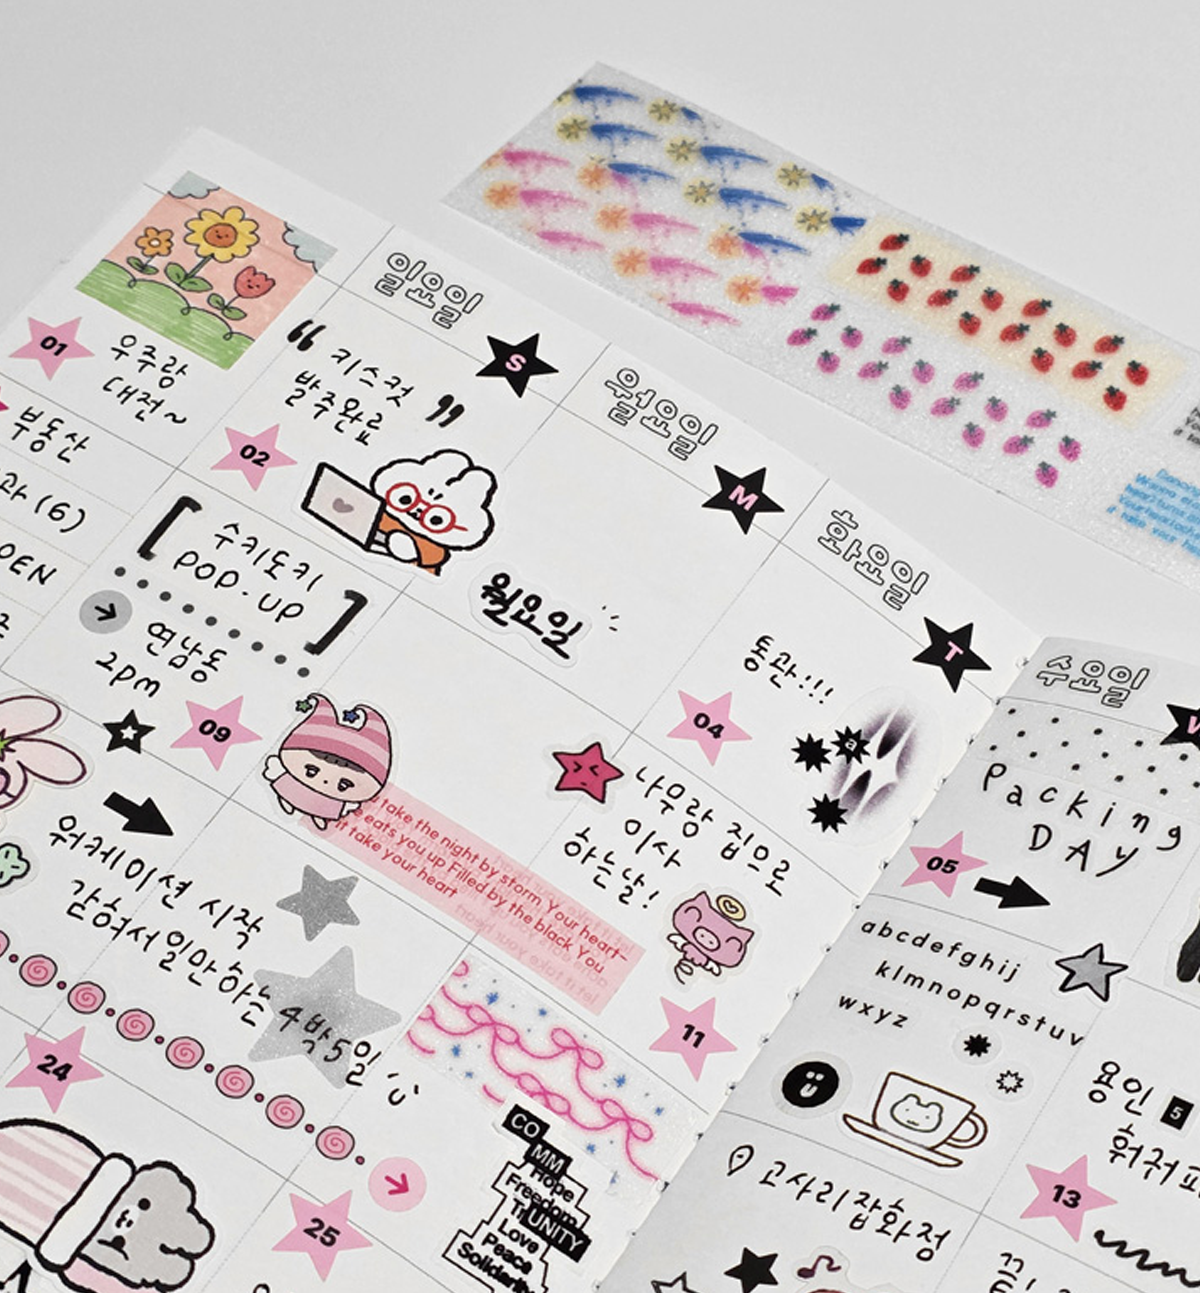 일요일
S
월요일
M
화요일
T
수요일
01
우주랑
대전~
“키스컷
발주완료”
02
부동산
(6)
[수키도키
POP-UP]
연남동
2pm
09
월요일
통관!!!
04
a
Packing
DAY
05
나무랑 집으로
이사
하는날!
take the night by storm Your heart-
eats you up Filled by the black You
it take your heart
11
워케이션 시작
감혀서 일만하는 4박5일
24
25
CO
MM
Hope
Freedom
UNITY
Love
Peace
Solidarity
abcdefghij
klmnopqrstuv
wxyz
용인 5
13
고사리잡화정